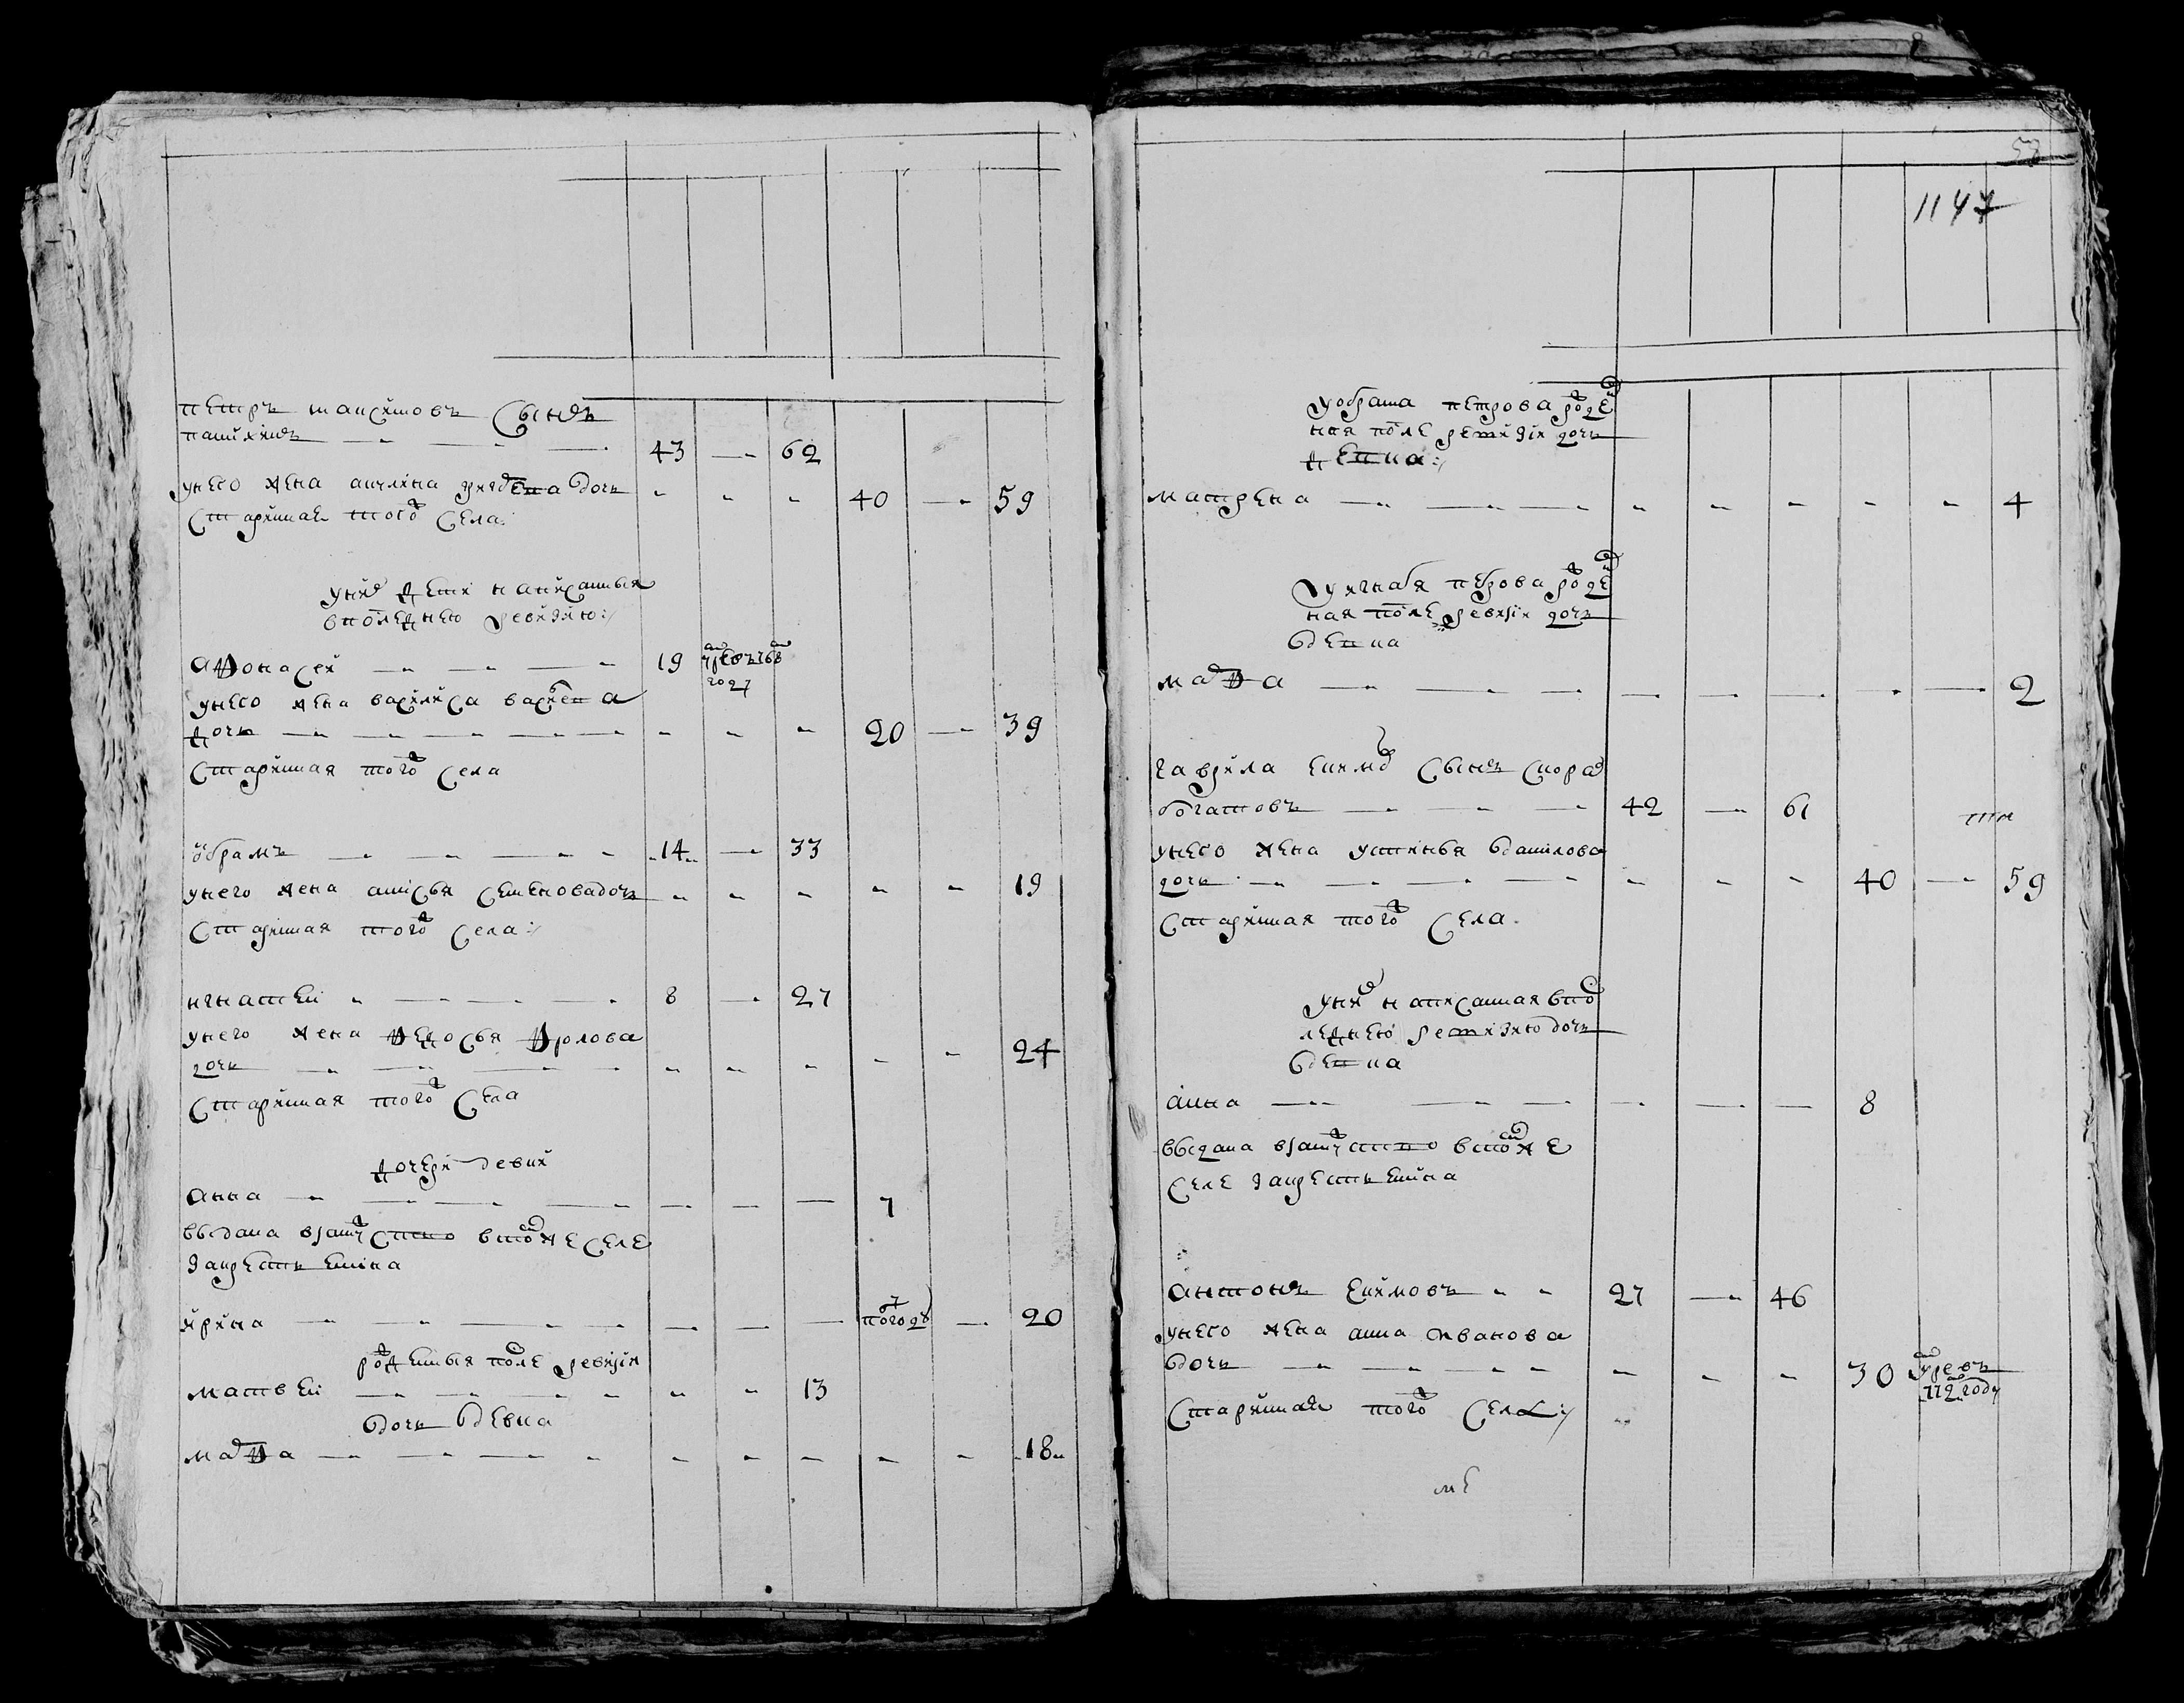 петръ максимовъ сынъ
пашкинъ — — — 43 — 62
унего жена акилина дочь - - - 40 — 59
старинная того села
уних дети написанныя
впоследнею ревизию:/
афонасей — — — 19 768
году
унего жена василиса васил а
дочь — — — — — - - - 20 — 39
старинная того села
обрамъ — — — — - 14 — 33
унего жена анисья семеновадочь - - - - - 19
старинная того села:/
игнатей - — — — 8 — 27
унего жена федосья фролова
дочь — — — — - - - - - 24
старинная того села
дочери девки
анна — — — — — — — 7
выдана взамужство втомже селе
закрестьянина
ирина — — — — — — — — — 20
погоду
рожденныя после ревизии
матвей — — — — - - 13
дочь девка
марфа — — — - - - - - - 18
53
1147
уобрама петрова рожден
ная после ревизии дочь
девка:/
матрена — — — - - - - - 4
уигнатья петрова рожден
ная после ревизии дочь
девка
марфа — — — — — — - — 2
гаврила екимов сынъ скоро
богатовъ — — — 42 — 61
унего жена устинья данилова
дочь — — — — - - - 40 — 59
старинная того села
уних написанная впос
леднею ревизию дочь
девка
анна — — — — — — 8
выдана взамужство втомже
селе закрестьянина
антонъ екимовъ - - 27 — 46
унего жена анна иванова
дочь — — — — — - - - 30
772 году
старинная того села:/